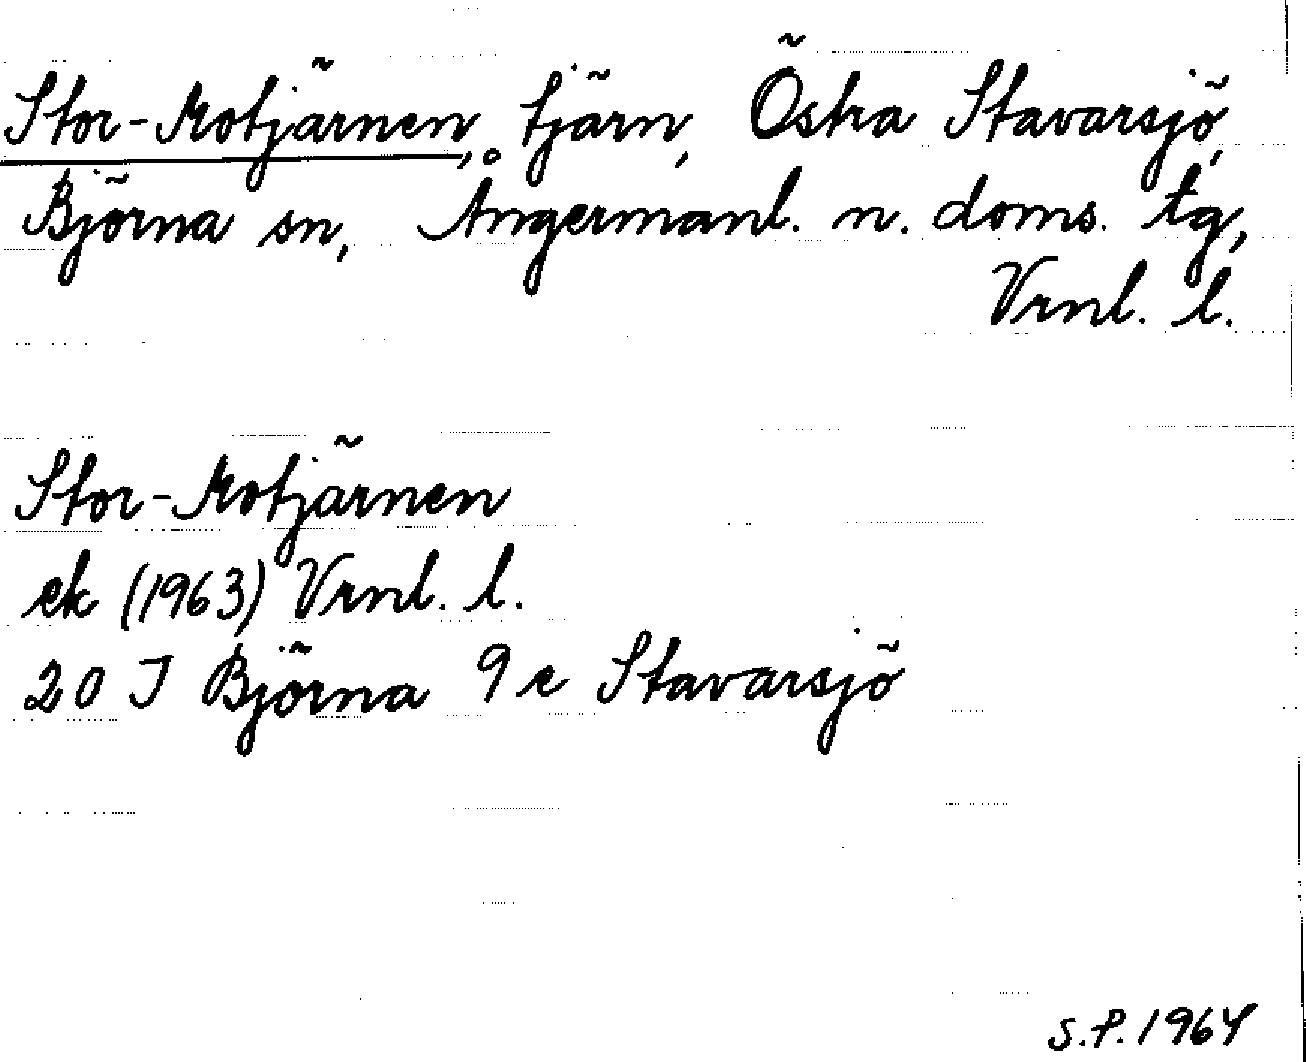 Stor-Motjärnen, tjärn, Östra Stavarsjö,
Björna sn, Ångermanl. n. doms. tg,
Vrnl. l.
Stor-Motjärnen
ek (1963) Vrnl. l.
20 J Björna 9 e Stavarsjö
S.P. 1964